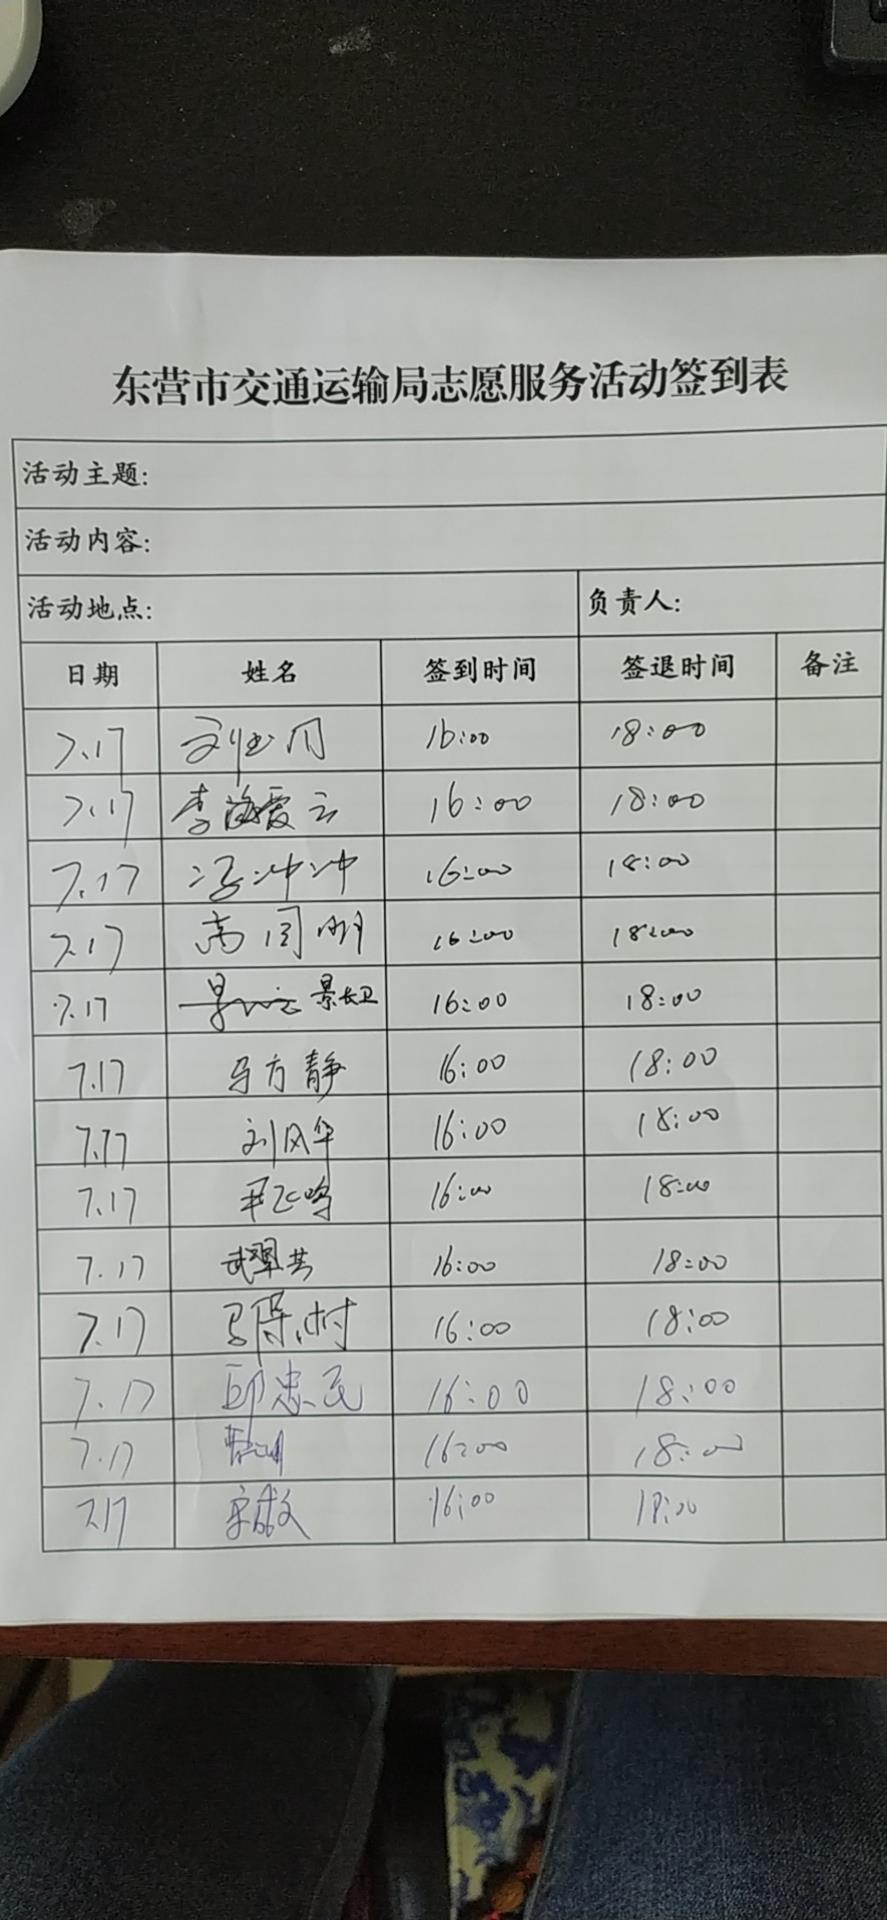 东营市交通运输局志愿服务活动签到表
活动主题:
活动内容:
活动地点: 负责人:
日期 姓名 签到时间 签退时间 备注
7.17 16:00 18:00
7.17 李海爱云 16:00 18:00
7.17 冯冲冲 16:00 18:00
7.17 高同明 16:00 18:00
7.17 景长卫 16:00 18:00
7.17 马方静 16:00 18:00
7.17 刘风华 16:00 18:00
7.17 飞鸣 16:00 18:00
7.17 武翠芸 16:00 18:00
7.17 马保村 16:00 18:00
7.17 邱忠民 16:00 18:00
7.17 16:00 18:00
7.17 16:00 18:00